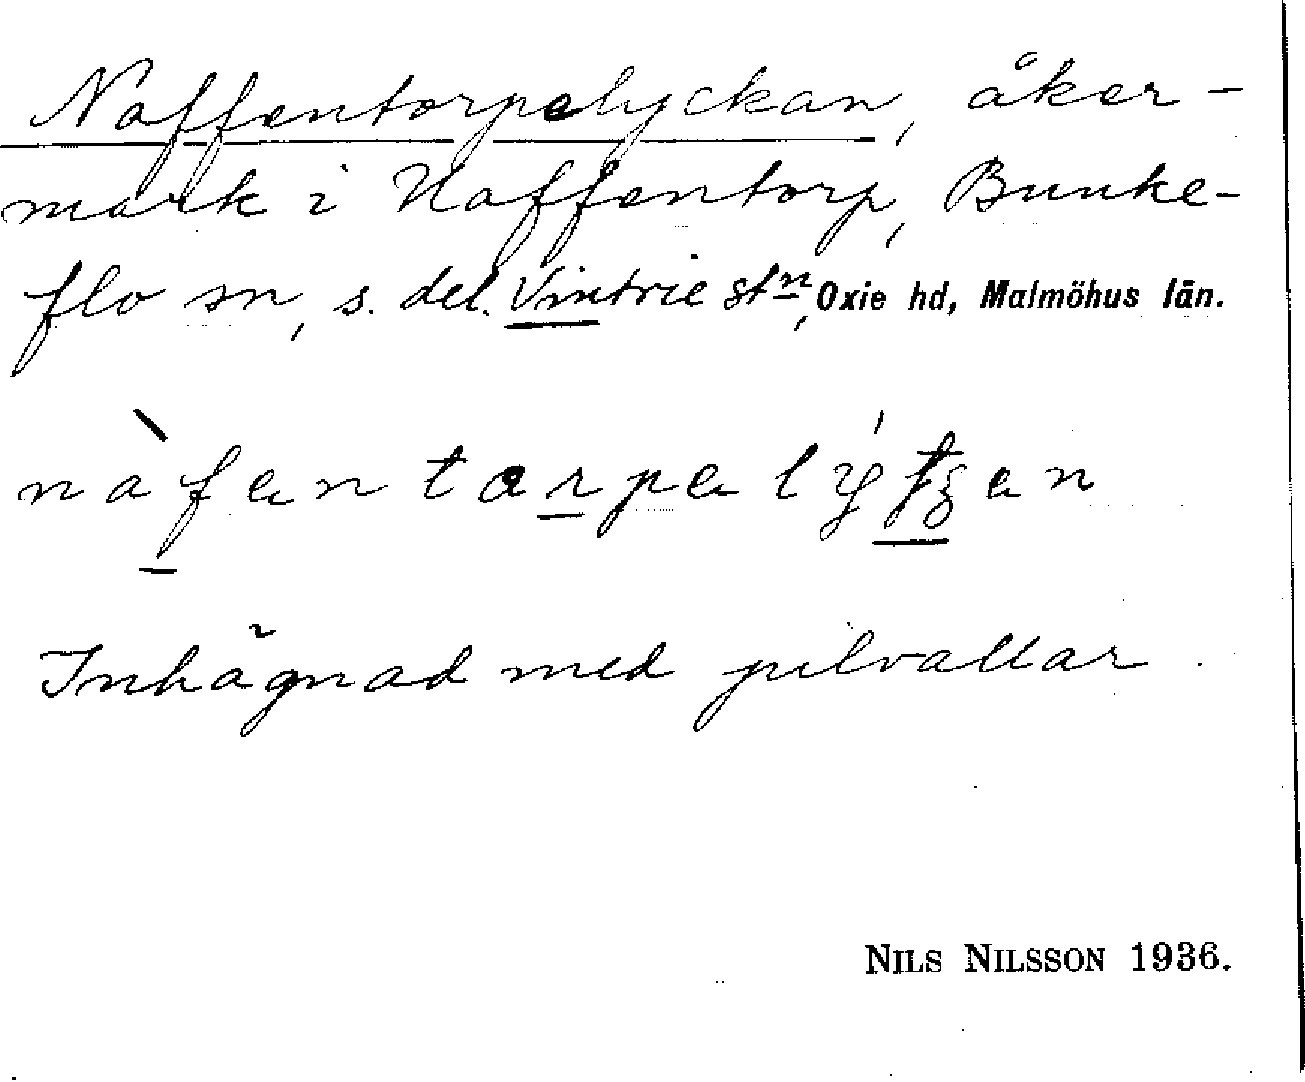 Naffentorpelyckan, åker-
mark i Naffentorp, Bunke-
flo sn, s. del. Vintrie stn, Oxie hd, Malmöhus län.
Inhägnad med pilvallar.
NILS NILSSON 1936.